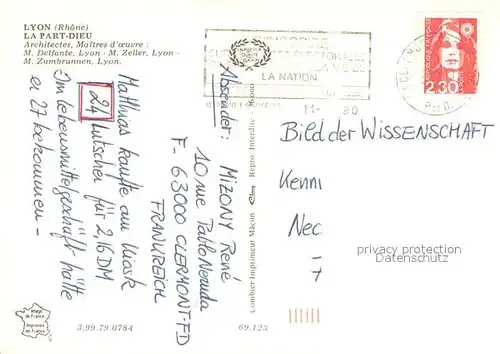 LYON (Rhône)
LA PART-DIEU
Architectes, Maîtres d'œuvre :
M. Delfante, Lyon - M. Zeller, Lyon -
M. Zumbrunnen, Lyon.
LA NATION
11- 90
2,30
Matthias kaufte am Kiosk
24 Lutscher für 2,16 DM
Im Lebensmittelgeschäft hätte
er 27 bekommen -
Absender: MIZONY René
10 rue Pablo Neruda
F- 63000 CLERMONT-FD
FRANKREICH
Combier Imprimeur Mâcon
Repro. Interdite
Bild der WISSENSCHAFT
Kenni
Nec
- 7
proprietary photo
oldthing.de
Image
de France
Imprimée
en France
3.99.79.0784
69.123